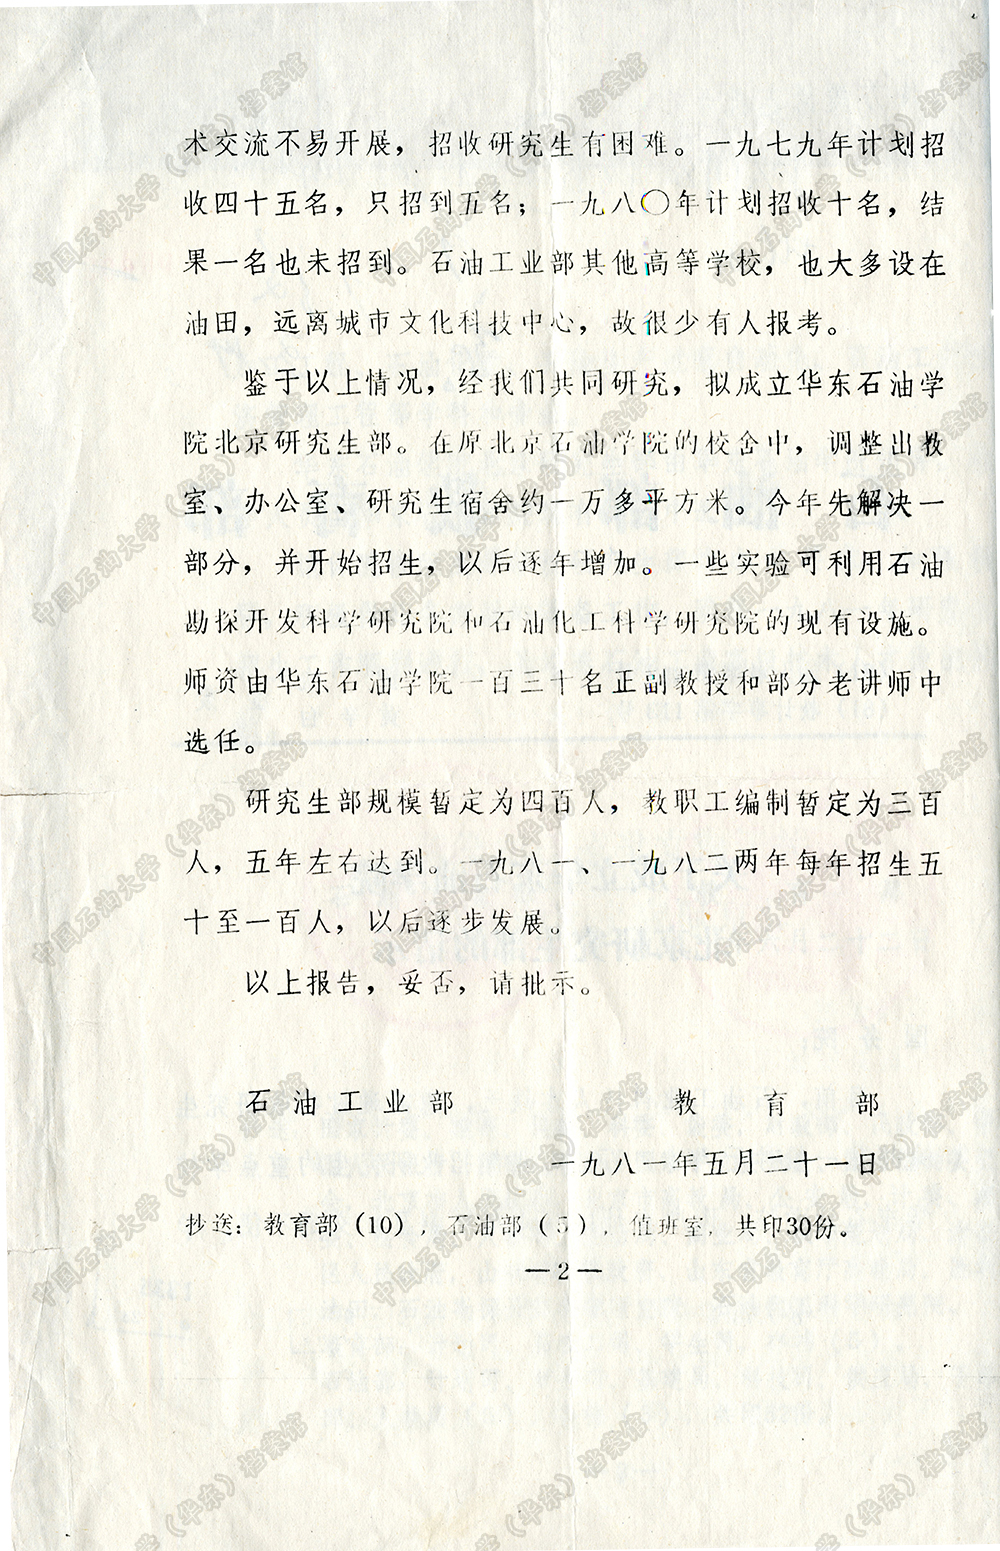 术交流不易开展，招收研究生有困难。一九七九年计划招
收四十五名，只招到五名；一九八〇年计划招收十名，结
果一名也未招到。石油工业部其他高等学校，也大多设在
油田，远离城市文化科技中心，故很少有人报考。
鉴于以上情况，经我们共同研究，拟成立华东石油学
院北京研究生部。在原北京石油学院的校舍中，调整出教
室、办公室、研究生宿舍约一万多平方米。今年先解决一
部分，并开始招生，以后逐年增加。一些实验可利用石油
勘探开发科学研究院和石油化工科学研究院的现有设施。
师资由华东石油学院一百三十名正副教授和部分老讲师中
选任。
研究生部规模暂定为四百人，教职工编制暂定为三百
人，五年左右达到。一九八一、一九八二两年每年招生五
十至一百人，以后逐步发展。
以上报告，妥否，请批示。
石油工业部 教育部
一九八一年五月二十一日
抄送：教育部（10），石油部（5），值班室，共印30份。
—2—
中国石油大学（华东）档案馆